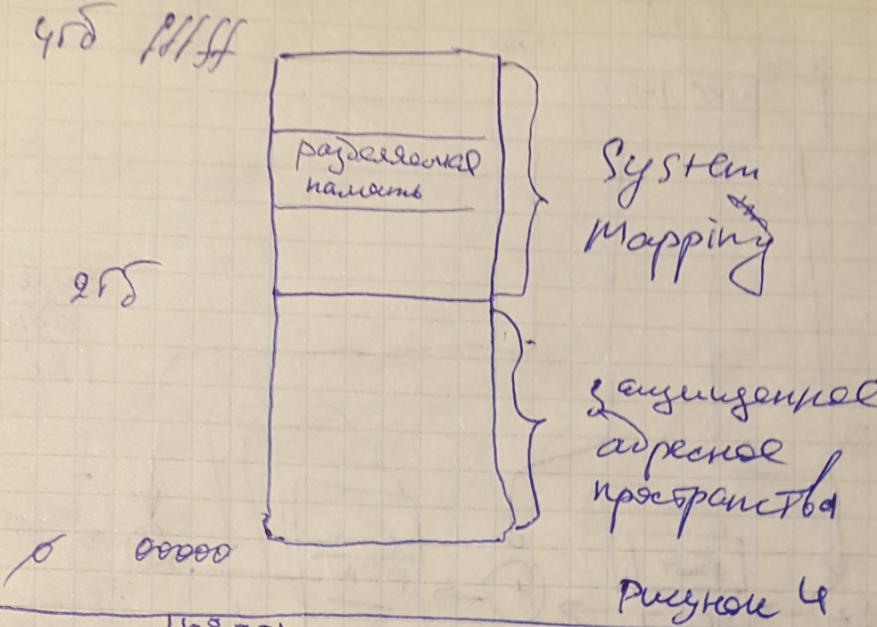 4гб fffff
разделяемая
память
System
Mapping
2гб
защищенное
адресное
пространства
0 00000
Рисунок 4